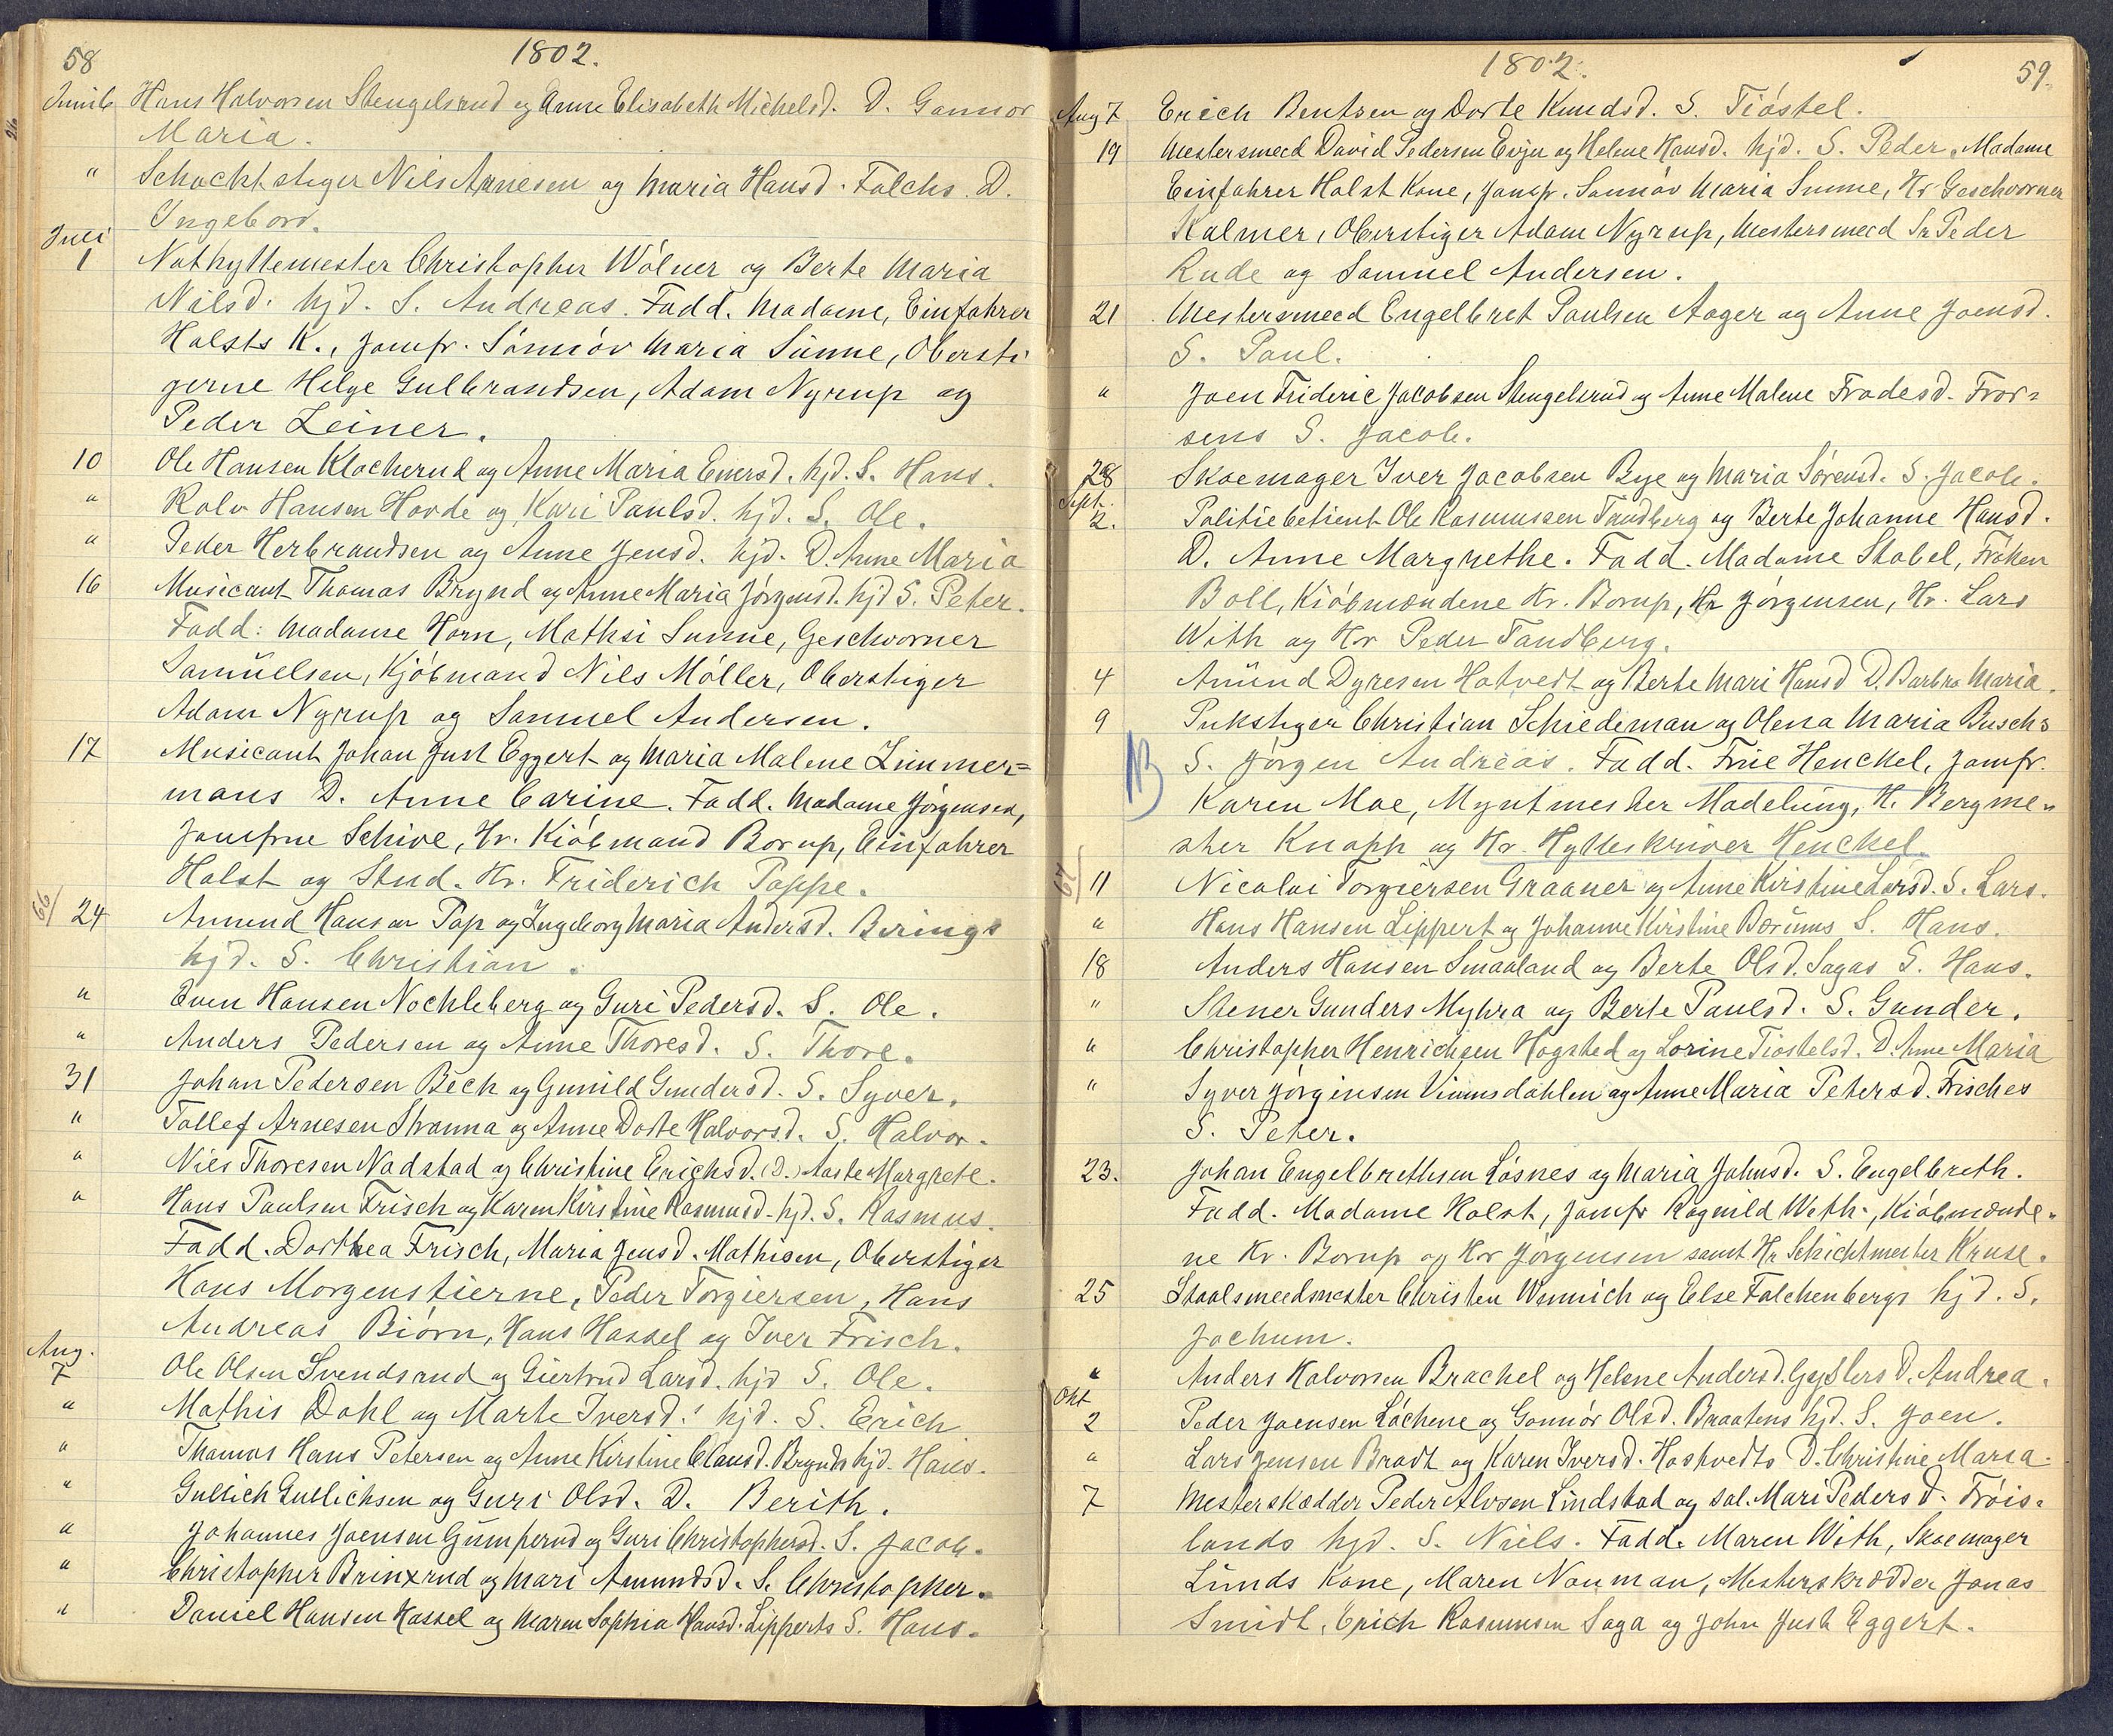 58 1802.
Juni 6 Hans Halvorsen Stengelsrud og Anne Elisabeth Michelsd. D. Gunnor
Maria.
" Schachtstiger Nils Arnesen og Maria Hansd. Falchs. D.
Ingebord.
Juli
1 Nathyttemester Christopher Wölner og Berte Maria
Nilsd. hjd. S. Andreas. Fadd. Madame, Einfahrer
Holsts K., Jomfr. Sönnöv Maria Sünne, Obersti
gerne Helge Gulbrandsen, Adam Nyrup og
Peder Leiner.
10 Ole Hansen Klocherud og Anne Maria Eversd. hjd. S. Hans.
" Rolv Hansen Hovde og Kari Paulsd. hjd. S. Ole.
" Peder Herbrandsen og Anne Jensd. hjd. D. Anne Maria
16 Musicant Thomas Brynd og Anne Maria Jörgensd. hjd S. Peter.
Fadd: Madame Horn, Mathsi Sunne, Geschworner
Samüelsen, Kjöbmand Nils Möller, Oberstiger
Adam Nyrup og Samuel Andersen.
17 Musicant Johan Just Eggert og Maria Malene Zimmer=
mans D. Anne Carine. Fadd. Madame Jörgensen,
Jomfrue Schive, Hr. Kiöbmand Borup, Einfahrer
Holst og Stud. Hr. Friderich Poppe.
66/ 24 Amund Hansen Pap og Ingeborg Maria Andersd. Birings
hjd. S. Christian.
" Even Hansen Nochleberg og Guri Pedersd. S. Ole.
" Anders Pedersen og Anne Thoresd. S. Thore.
31 Johan Pedersen Bech og Gunild Gundersd. S. Syver.
" Tollef Arnesen Stranna og Anne Dorte Halvorsd. S. Halvor.
" Niels Thoresen Nadstad og Christine Erichsd. (D.) Aaste Margrete.
" Hans Paulsen Frisch og Karen Kirstine Rasmusd. hjd. S. Rasmus.
Fadd. Dorthea Frisch, Maria Jensd. Mathisen, Oberstiger
Hans Morgenstierne, Peder Torgiersen, Hans
Andreas Biörn, Hans Hassel og Iver Frisch.
Aug.
7 Ole Olsen Svendsrud og Giertrud Larsd. hjd S. Ole.
" Mathis Dahl og Marte Iversd. hjd. S. Erich
" Thomas Hans Petersen og Anne Kirstine Clausd. Brynds hjd. Hans.
" Gullich Gullichsen og Guri Olsd. D. Berith.
" Johannes Joensen Gümperud og Guri Christophersd. S. Jacob.
" Christopher Brinxrud og Mari Amundsd. S. Christopher.
" Daniel Hansen Hassel og Maren Sophia Hansd. Lipperts S. Hans.
1802. 59.
Aug 7 Erich Bentsen og Dorte Knudsd. S. Tiöstel.
19 Mestersmed David Pedersen Evju og Helene Hansd. hjd. S. Peder. Madame
Einfahrer Holst Kone, Jomfr. Sönnöv Maria Sunne, Hr Geschworner
Kalmer, Oberstiger Adam Nyrup, Mestersmed Sr Peder
Rude og Samuel Andersen.
21 Mestersmed Engelbret Paulsen Aager og Anne Joensd.
S. Paul.
" Joen Frideric Jacobsen Stengelsrud og Anne Malene Fradesd. Fror=
sens S. Jacob.
28 Skoemager Iver Jacobsen Bye og Maria Sörensd. S. Jacob.
Sept.
2. Politiebetient Ole Rasmussen Tandberg og Berte Johanne Hansd.
D. Anne Margrethe. Fadd. Madame Stabel, Fröken
Boll, Kiöbmændene Hr. Borup, Hr Jörgensen, Hr. Lars
With og Hr Peder Tandberg.
4 Amünd Dyresen Hotvedt og Berte Mari Hansd D. Barbra Maria.
9 Pukstiger Christian Schiedeman og Olena Maria Buschs
NB S. Jörgen Andreas. Fadd. Frue Henckel, Jomfr.
Karen Moe, Myntmester Madelung, H. Bergme=
ster Knapp og Hr. Hytteskriver Henckel.
67/ 11 Nicolai Torgiersen Graaner og Anne Kirstine Larsd. S. Lars.
" Hans Hansen Lippert og Johanne Kirstine Bærums S. Hans.
18 Anders Hansen Smaaland og Berte Olsd. Sagas S. Hans.
" Stener Gunders Myhra og Berte Paulsd. S. Gunder.
" Christopher Henrichsen Hogsted og Lorine Tiostelsd. D. Anne Maria
" Syver Jörginsen Vinmsdahlen og Anne Maria Petersd. Frisches
S. Peter.
23. Johan Engelbrethsen Lösnes og Maria Johnsd. S. Engelbreth.
Fadd. Madame Holst, Jomfr Ragnild With, Kiöbmænde=
ne Hr. Borup og Hr Jörgensen samt Hr Schichtmester Kruse.
25 Staalsmedmester Christen Wennich og Else Falchenbergs hjd. S.
Jochum.
" Anders Halvorsen Brachel og Helene Andersd. Gysslers D. Andrea.
Okt
2 Peder Joensen Löchene og Gonnör Olsd. Braatens hjd. S. Joen.
" Lars Jensen Bradt og Karen Iversd. Hostvedts D. Christine Maria.
7 Mesterskredder Peder Alvsen Lindstad og sal. Mari Pedersd. Fröis=
lands hjd. S. Niels. Fadd. Maren With, Skoemager
Lunds Kone, Maren Nauman, Mesterskrædder Jonas
Smidt, Erich Rasmusen Saga og John Just Eggert.